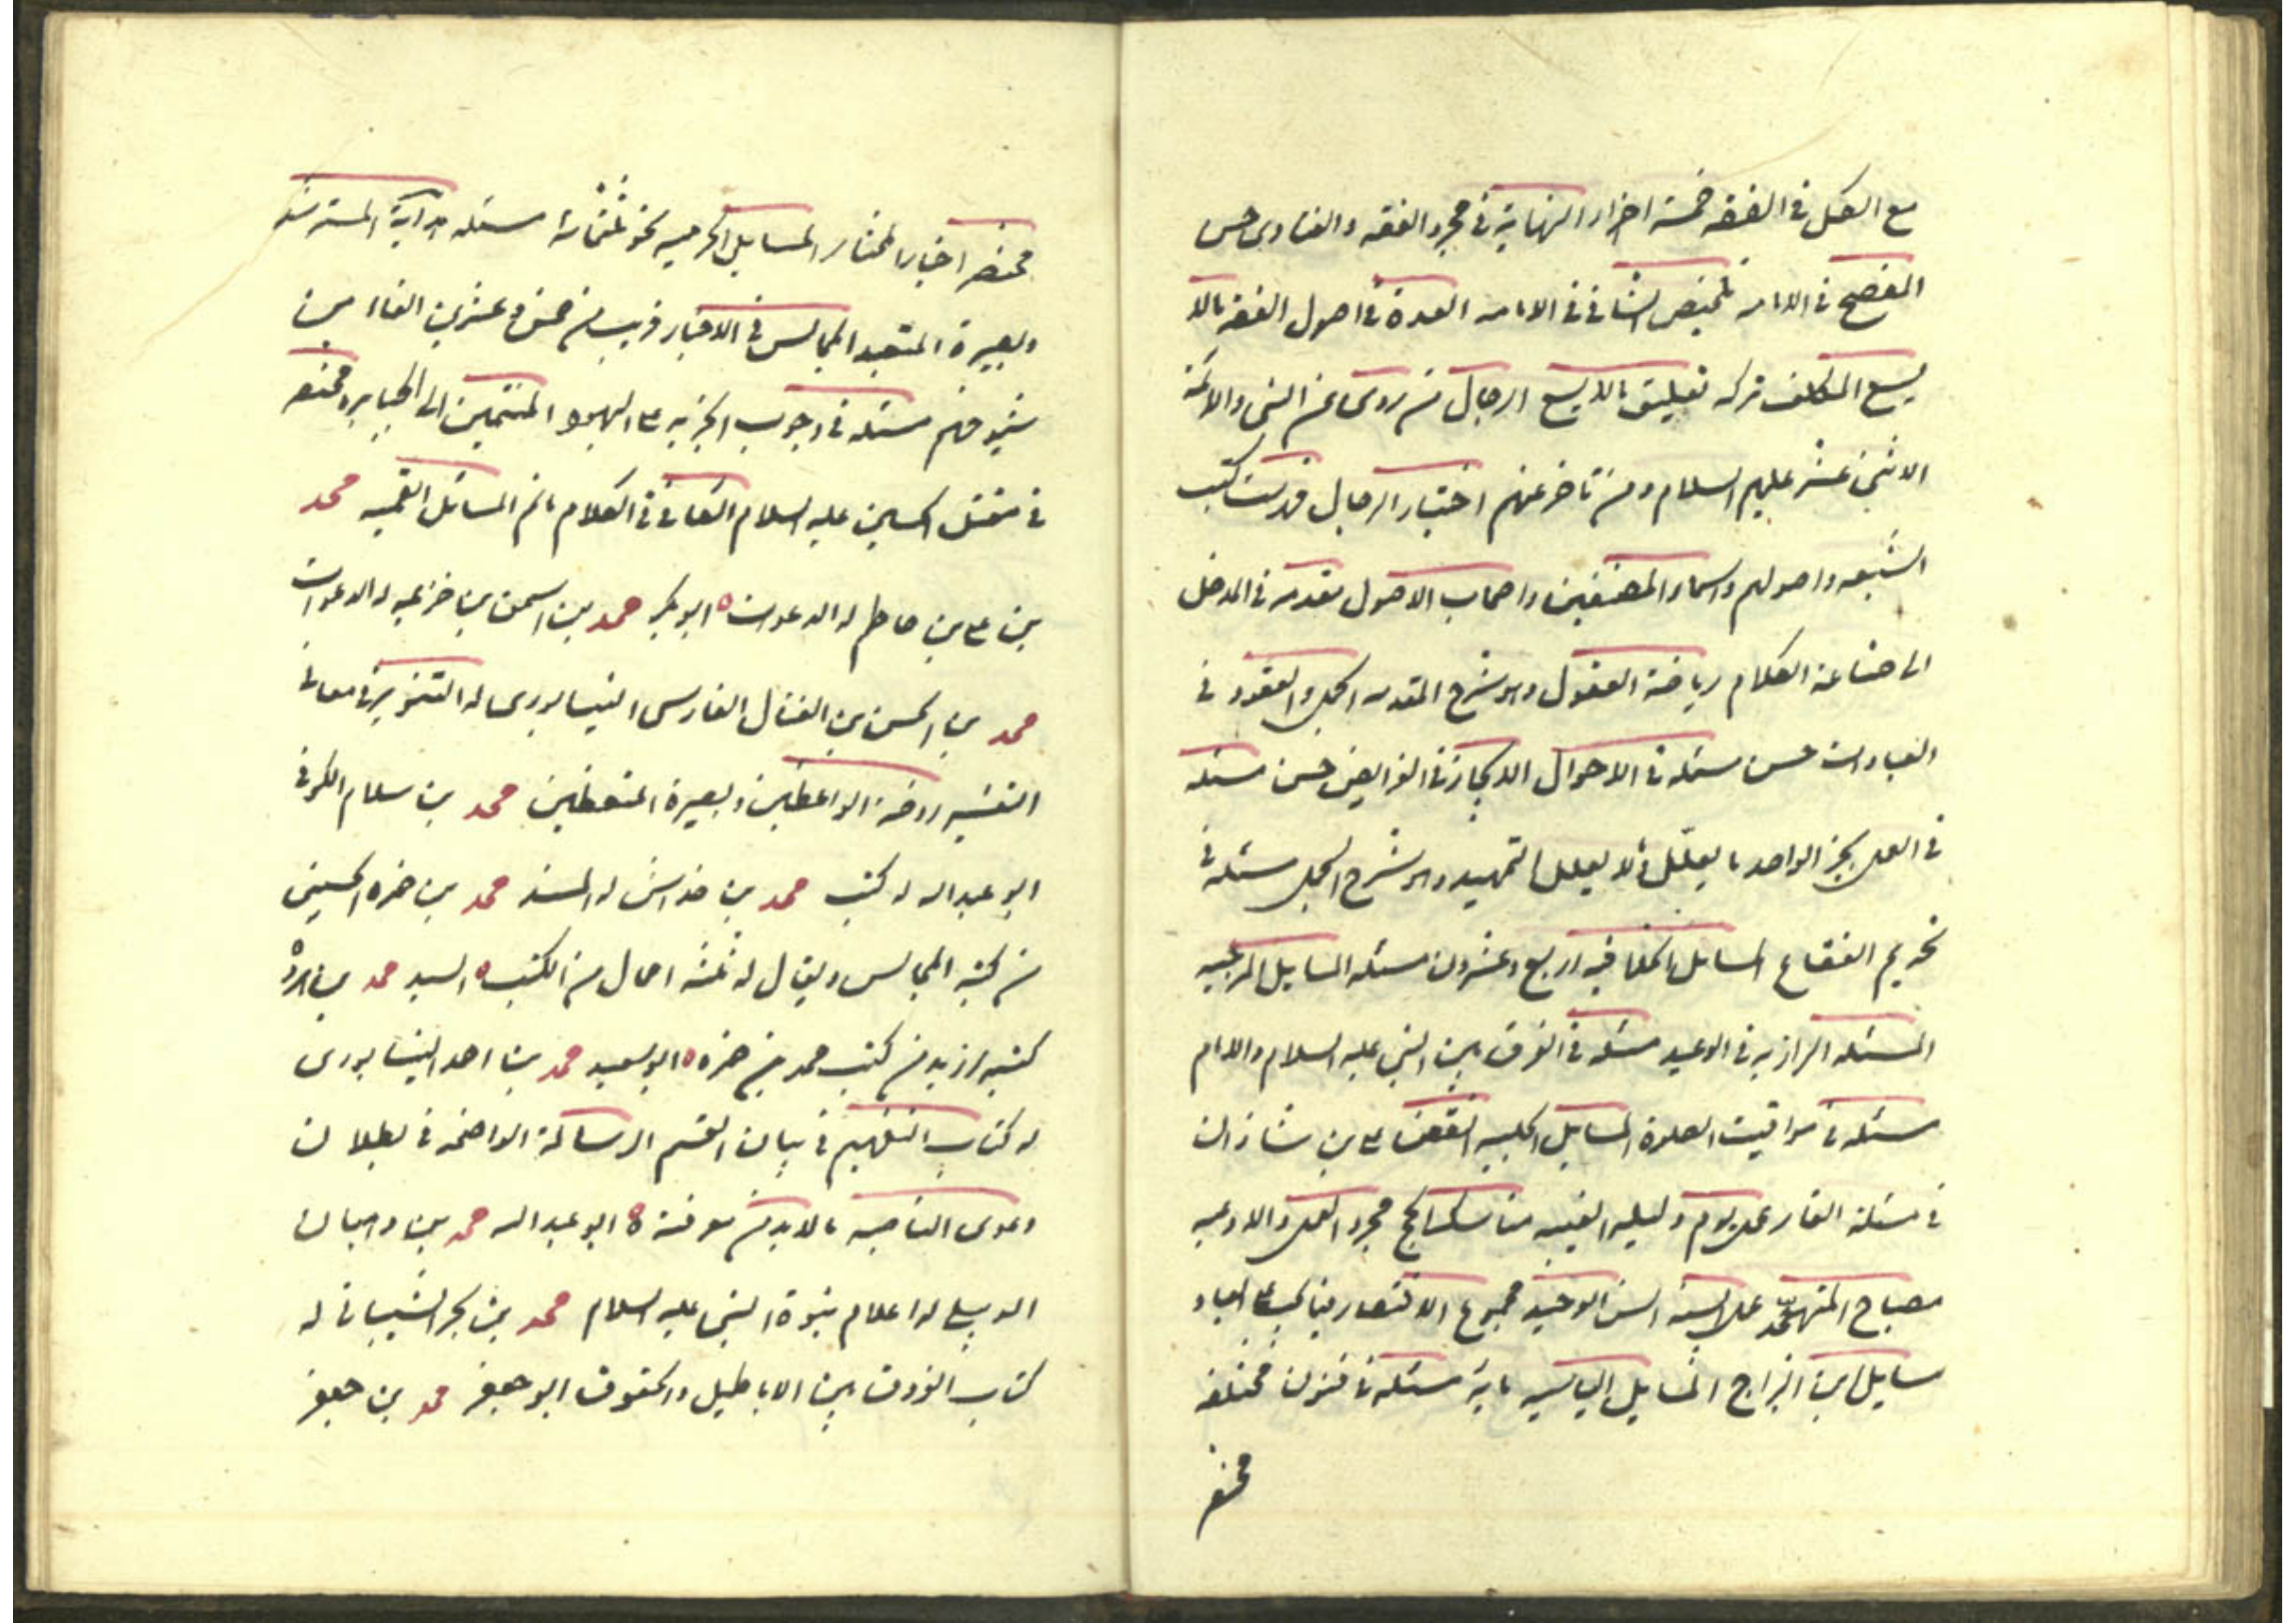 مع الكل في الفقه خمسة اجزاء النهاية في مجرد الفقه والفتاوى حسن
المفصح في الامامه تلخيص الشافي في الامامه العدة في اصول الفقه مالا
يسع المكلف تركه تعليق مالا يسع الرجال من روى عن النبي والائمة
الاثنى عشر عليهم السلام ومن تاخر عنهم اختيار الرجال فهرست كتب
الشيعه واصولهم واسماء المصنفين واصحاب الاصول مقدمه في المدخل
الى صناعة الكلام رياضة العقول وهو شرح المقدمه الجمل والعقود في
العبادات حسن مسئله في الاحوال الايجاز في الفرايض حسن مسئله
في العمل بخبر الواحد ما يعلّل وما لا يعلل التمهيد وهو شرح الجمل مسئله في
تحريم الفقاع المسايل الخلافيه اربع وعشرون مسئله المسايل الرجبيه
المسئله الرازيه في الوعيد مسئله في الفرق بين النبي عليه السلام والامام
مسئله في مواقيت الصلوة المسايل الحلبيه النقض على بن شاذان
في مسئلة الغار عمل يوم وليله الغيبه مناسك الحج مجرد العمل والادعيه
مصباح المتهجد عمل السنه انس الوحيد مجموع الاقتصاد فيما يجب على العباد
مسايل ابن البراج المسايل الياسيه ماية مسئله في فنون مختلفه
مختصر
مختصر اخبار المختار المسايل الحرميه نحو ثلثمائة مسئله هداية المسترشد
وبصيرة المتعبد المجالس في الاخبار قريب من خمس وعشرين الفا من
شيوخهم مسئله في وجوب الجزيه على اليهود المنتمين الى الجبابره مختصر
في مقتل الحسين عليه السلام الكافي في الكلام ماتم المسائل القميه محمد
بن على بن حاطم له الدعوات ابو بكر محمد بن اسحق بن خزيمه له الدعوات
محمد بن الحسن بن الفتال الفارسى النيسابورى له التنوير في معاني
التفسير روضة الواعظين وبصيرة المتعظين محمد بن سلام الكوفي
ابو عبد الله له كتب محمد بن خداش له المسند محمد بن حمزه الحسيني
من كتبه المجالس ويقال له ثلثة احمال من الكتب السيد محمد بن
كتبه ازيد من كتب محمد بن حمزه ابو سعيد محمد بن احمد النيسابورى
له كتاب التفهيم في بيان القسم الرسالة الواضحه في بطلان
دعوى الناصبه مالا بد من معرفته ابو عبد الله محمد بن وهبان
الدبيلى له اعلام نبوة النبي عليه السلام محمد بن بحر الشيباني له
كتاب الفروق بين الاباطيل والحقوق ابو جعفر محمد بن جعفر